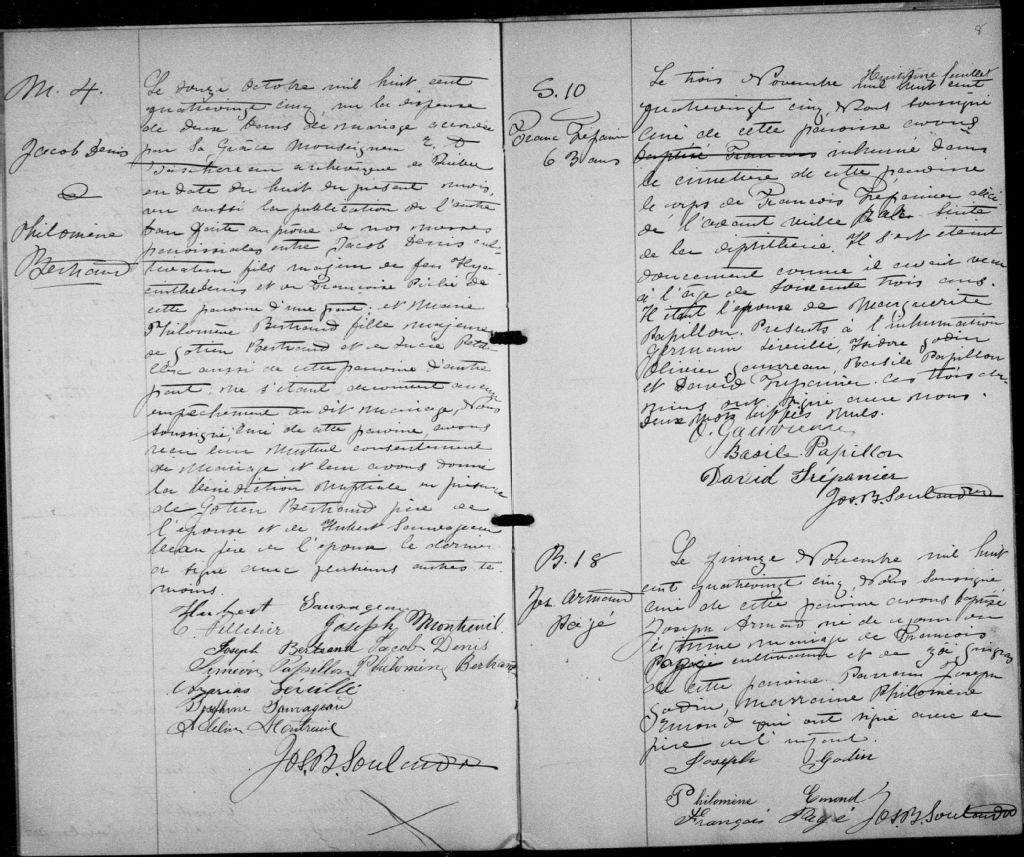 M. 4.
Jacob Denis
&
Philomène
Bertrand
Le douze Octobre mil huit cent
quatrevingt cinq vu la dispense
de deux bans de mariage accordée
par Sa Grâce Monseigneur E. A
Taschereau archevêque de Québec
en date du huit du présent mois,
vu aussi la publication de l'autre
ban faite au prone de nos messes
paroissiales entre Jacob Denis cul-
tivateur fils majeur de feu Hya
cinthe Denis et de Françoise Piché de
cette paroisse d'une part; et Marie
Philomène Bertrand fille majeure
de Gotien Bertrand et de Luce
aussi de cette paroisse d'autre
part; ne s'étant découvert aucun
empêchement au dit mariage, Nous
soussigné, curé de cette paroisse, avons
reçu leur mutuel consentement
de mariage et leur avons donné
la bénédiction nuptiale en présence
de Gotien Bertrand père de
l'épouse et de Hubert Sauvageau
beau père de l'époux le dernier
a signé avec plusieurs autres té-
moins.
Hubert Sauvageau
C. Pelletier Joseph Montreuil
Joseph Bertrand Jacob Denis
Siméon Papillon Philomène Bertrand
Léveillé
Josephine Sauvageau
Adeline Montreuil
Jos. B. Soulard
8
S. 10
Franc Trépanier
63 ans
Le trois Novembre mil huit cent
quatrevingt cinq Nous soussigné
curé de cette paroisse avons
baptisé François inhumé dans
le cimetière de cette paroisse
le corps de François Trépanier décé
dé l'avant veille
de la diphthérie. Il s'est éteint
doucement comme il avait vécu
à l'âge de soixante trois ans.
Il était l'époux de Marguerite
Papillon. Présents à l'inhumation
Germain Léveillé, Isidore Godin
Olivier Gauvreau, Basile Papillon
et David Trépanier. Ces trois der-
niers ont signé avec nous.
Deux mots biffés nuls.
O. Gauvreau
Basile Papillon
David Trépanier
Jos. B. Soulard
B. 18
Jos Armand
Pagé
Le quinze Novembre mil huit
cent quatrevingt cinq Nous soussigné
curé de cette paroisse avons baptisé
Joseph Armand né de ce jour du
légitime mariage de François
Pagé cultivateur et de Zoé Gingras
de cette paroisse. Parrain Joseph
Godin, marraine Philomène
Emond qui ont signé avec le
père de l'enfant.
Joseph Godin
Philomène Emond
François Pagé Jos. B. Soulard